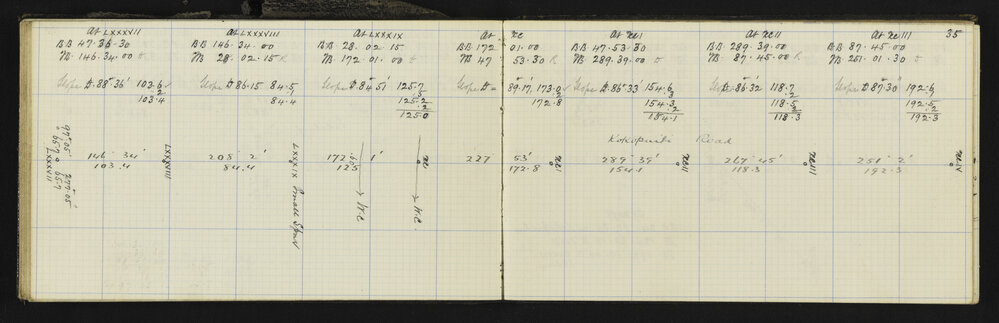 35
At LXXXVII
BB 47.36.30
FB 146.34.00
Slope D 88° 36' 103.6
.2
103.4
At LXXXVIII
BB 146.34.00
FB 28.02.15 R
Slope D 86.15 84.5
84.4
At LXXXIX
BB 28.02 15
FB 172.01.00
Slope D 84 51' 125.7
.5
125.2
.2
125.0
At xc
BB 172 01.00
FB 47 53.30 R
Slope D = 89.17' 173.0
172.8
At xcI
BB 47.53.30
FB 289.39.00
Slope D 86° 33' 154.6
.3
154.3
.2
154.1
At xcII
BB 289.39.00
FB 87.45.00 R
Slope D 86.32' 118.7
.2
118.5
.2
118.3
At xcIII
BB 87.45.00
FB 251.01.30
Slope D 87.30 192.6
192.5
.2
192.3
Road
LXXXVII
146° 34'
103.4
LXXXVIII
208° 2'
84.4
LXXXIX Small Spur
172° 1'
125
W.C
xc
W.C.
227 53'
172.8
xcI
289° 39'
154.1
xcII
267° 45'
118.3
xcIII
251° 2'
192.3
xcIV